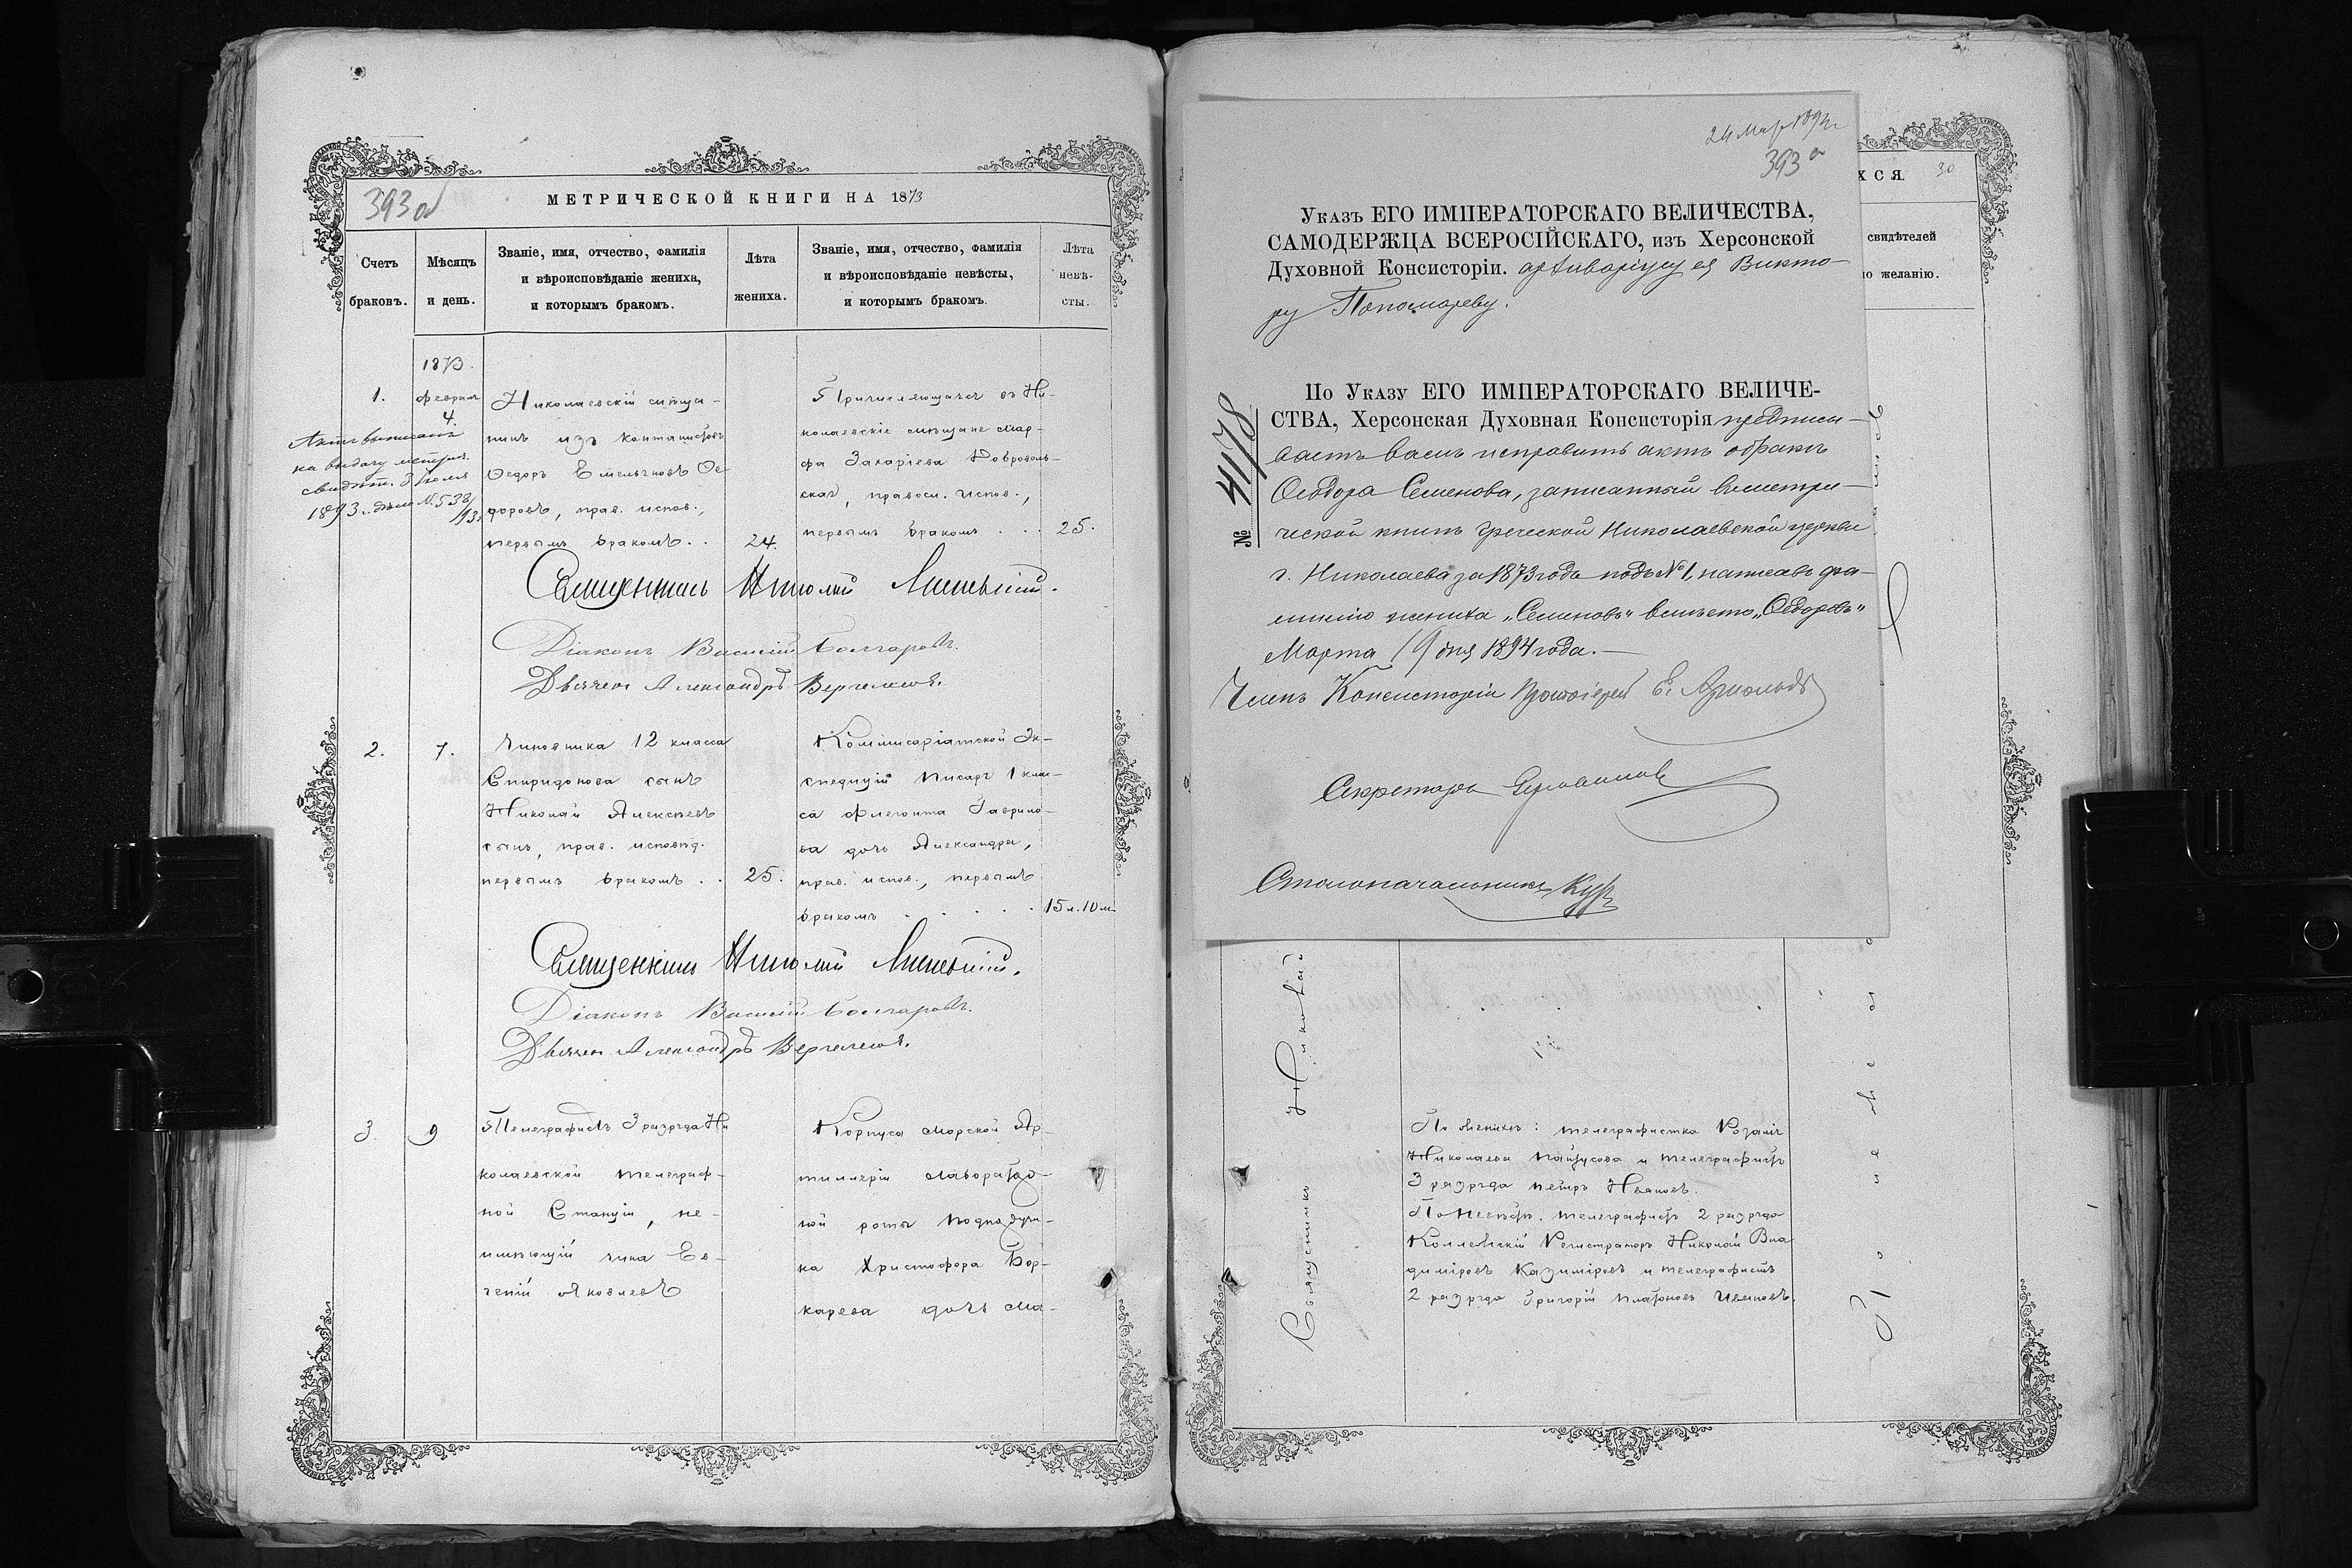 393 об
МЕТРИЧЕСКОЙ КНИГИ НА 1873
Счетъ браковъ.
Мѣсяцъ и день.
Званіе, имя, отчество, фамилія
и вѣроисповѣданіе жениха,
и которымъ бракомъ.
Лѣта
жениха.
Званіе, имя, отчество, фамилія
и вѣроисповѣданіе невѣсты,
и которымъ бракомъ.
Лѣта
невѣ-
сты.
1873.
1.
февраля
4.
Актъ выписанъ
на выдачу метрич.
свидѣт. 3 Іюля
1893 г. дѣло № 538/93.
Николаевскій мѣща-
нинъ изъ кантонистовъ
Ѳедоръ Емельяновъ Ѳе-
доровъ, прав. испов.,
первымъ бракомъ . .
24.
Причисляющаяся въ Ни-
колаевскіе мѣщане Мар-
фа Захаріева Добровольс-
кая, правосл. испов.,
первымъ бракомъ . . .
25.
Священникъ Николай
Діаконъ Василій Болгаровъ.
Дьячекъ Александръ
2.
7.
Чиновника 12 класса
Спиридонова сынъ
Николай Алексѣевъ
сынъ, прав. исповѣд.
первымъ бракомъ . .
25.
Коммисаріатской Эк-
спедиціи писаря 1 клас-
са Флегонта Гаврило-
ва дочь Александра,
прав. испов., первымъ
бракомъ . . . . .
15 л. 10 м.
Священникъ Николай
Діаконъ Василій Болгаровъ.
Дьячекъ Александръ
3.
9
Телеграфистъ 3 разряда Ни
колаевской телеграф-
ной Станціи, не-
имѣющій чина Ев-
геній Яковлевъ
Корпуса Морской Ар-
тиллеріи Лаборатор-
ной роты
Христофора Бор-
карева дочь Ма-
24 Мар 1894 г
393 а
Указъ ЕГО ИМПЕРАТОРСКАГО ВЕЛИЧЕСТВА,
САМОДЕРЖЦА ВСЕРОСІЙСКАГО, изъ Херсонской
Духовной Консисторіи. архиваріусу ея Викто-
ру Пономареву.
№ 4178
По Указу ЕГО ИМПЕРАТОРСКАГО ВЕЛИЧЕ-
СТВА, Херсонская Духовная Консисторія предписы-
ваетъ вамъ исправить актъ о бракѣ
Ѳеодора Семенова, записанный въ метри-
ческой книгѣ греческой Николаевской церкви
г. Николаева за 1873 годъ подъ № 1, написавъ фа-
милію жениха „Семеновъ" вмѣсто „Ѳедоровъ"
Марта 19 дня 1894 года.—
Членъ Консисторіи Протоіерей Е. Арнольдъ
Секретарь
Столоначальникъ
ХСЯ. 30
свидѣтелей
о желанію.
Николай
По женихѣ: телеграфистка Розалія
Николаева и телеграфистъ
3 разряда Петръ Ивановъ.
По невѣстѣ: телеграфистъ 2 разряда
Коллежскій Регистраторъ Николай Вла
диміровъ Казиміровъ и телеграфистъ
2 разряда Григорій Платоновъ Ивановъ.